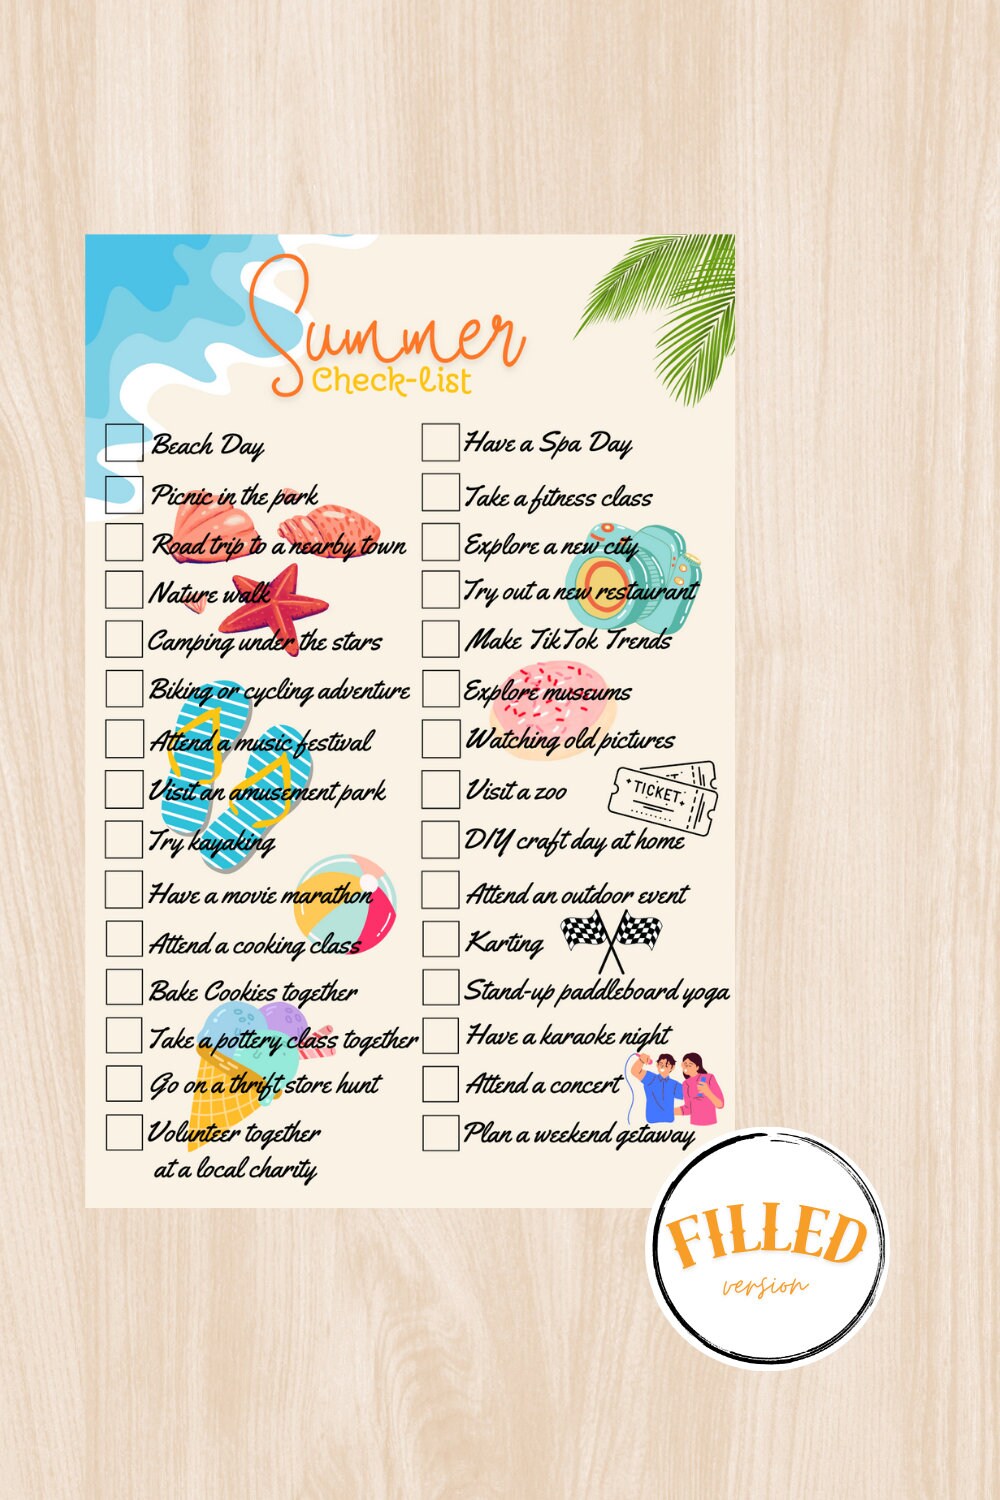 Summer
Check-list
Beach Day
Picnic in the park
Road trip to a nearby town
Nature walk
Camping under the stars
Biking or cycling adventure
Attend a music festival
Visit an amusement park
Try kayaking
Have a movie marathon
Attend a cooking class
Bake Cookies together
Take a pottery class together
Go on a thrift store hunt
Volunteer together
at a local charity
Have a Spa Day
Take a fitness class
Explore a new city
Try out a new restaurant
Make TikTok Trends
Explore museums
Watching old pictures
Visit a zoo
TICKET
DIY craft day at home
Attend an outdoor event
Karting
Stand-up paddleboard yoga
Have a karaoke night
Attend a concert
Plan a weekend getaway
FILLED
version